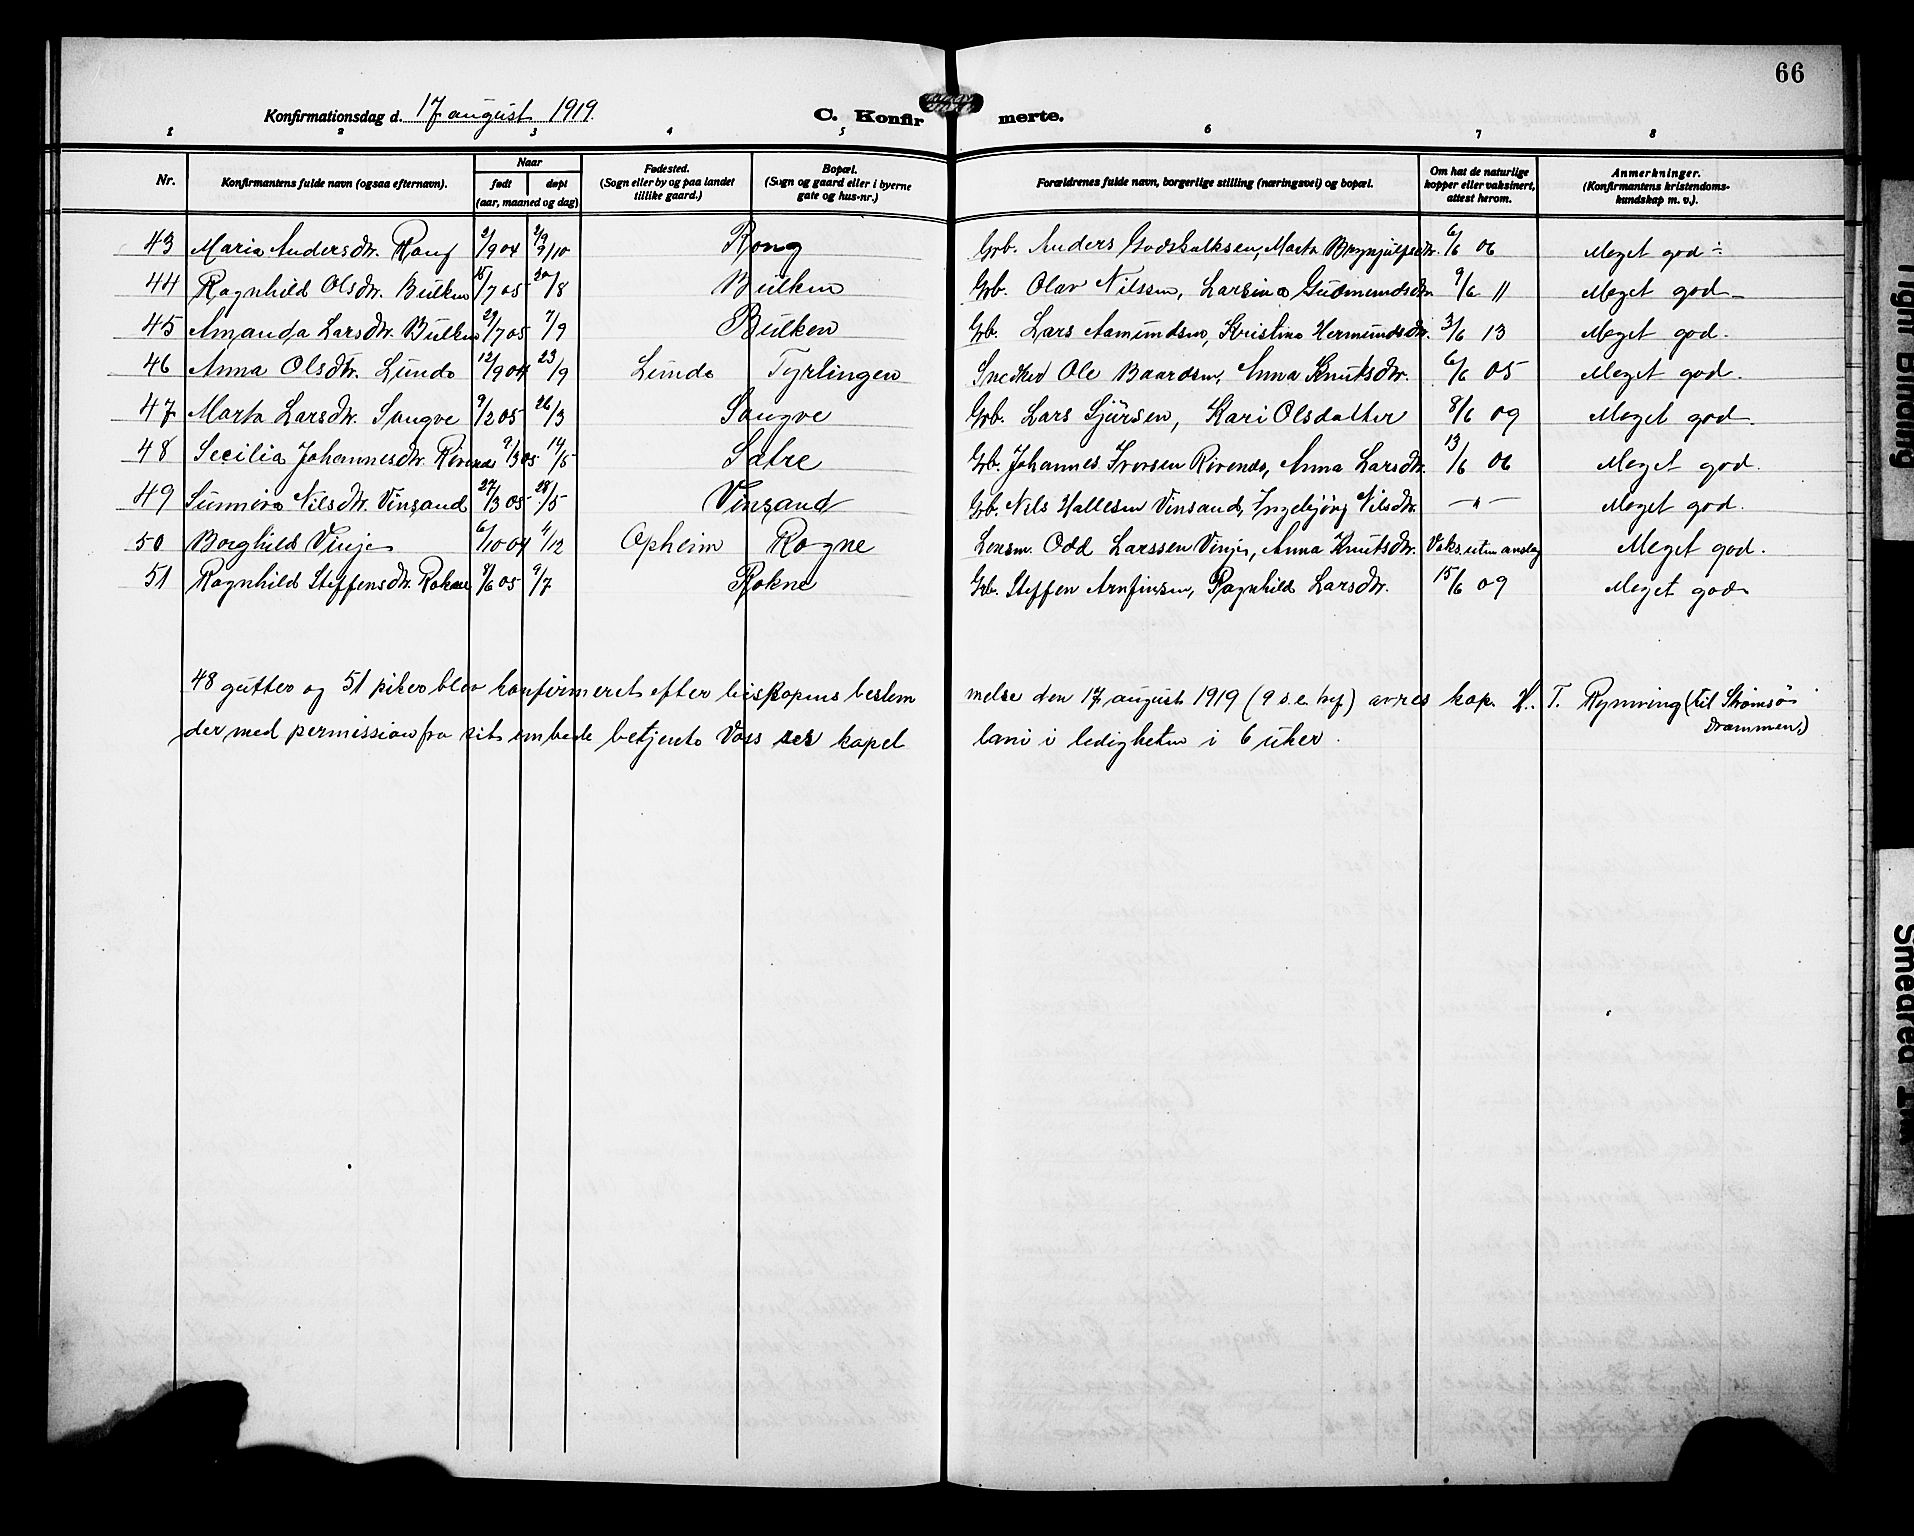 66
Konfirmationsdag d. 17 august 1919.
C. Konfirmerte.
1 2 3 4 5 6 7 8
Nr. Konfirmantens fulde navn (ogsaa efternavn). Naar født døpt (aar, maaned og dag) Fødested. (Sogn eller by og paa landet tillike gaard.) Bopæl. (Sogn og gaard eller i byerne gate og hus-nr.) Forældrenes fulde navn, borgerlige stilling (næringsvei) og bopæl. Om hat de naturlige kopper eller vaksinert, attest herom. Anmerkninger. (Konfirmantens kristendomskundskap m. v.).
43 Maria Andersdtr. Rong 2/9 04 2/10 Rong Grb. Anders Godskalksen, Marta Brynjulfsdtr. 6/6 06 Meget god ÷
44 Ragnhild Olsdtr. Bulken 15/7 05 20/8 Bulken Grb. Olav Nilsen, Larsina Gudmundsdtr. 9/6 11 Meget god
45 Amanda Larsdtr. Bulken 29/7 05 7/9 Bulken Grb. Lars Aamundsen, Kristina Hermundsdtr. 3/6 13 Meget god.
46 Anna Olsdtr. Lunde 12/9 04 23/9 Lunde Tyrlingen Snedker Ole Baardsen, Anna Knutsdtr. 6/6 05 Meget god.
47 Marta Larsdtr. Saugve 9/2 05 26/3 Saugve Grb. Lars Sjursen, Kari Olsdatter 8/6 09 Meget god.
48 Secilia Johannesdtr. Rivenes 9/3 05 14/5 Sætre Grb. Johannes Iversen Rivenes, Anna Larsdtr. 13/6 06 Meget god.
49 Sunniva Nilsdtr. Vinsand 27/3 05 28/5 Vinsand Grb. Nils Hallesen Vinsand, Ingebjørg Nilsdtr. — " — Meget god.
50 Borghild Vinje 6/10 04 4/12 Opheim Rogne Lensm. Odd Larssen Vinje, Anna Knutsdtr. Vaks. uten anslag Meget god.
51 Ragnhild Steffensdtr. Rokne 8/6 05 9/7 Rokne Grb. Steffen Arnfinsen, Ragnhild Larsdtr. 15/6 09 Meget god
48 gutter og 51 piker blev konfirmeret efter biskopens bestemmelse den 17 august 1919 (9 s. e. tref) av res. kap. H. T. Rynning (til Strømsø Drammen)
der med permission fra sit embede betjente Voss res kapellani i ledigheten i 6 uker.
Tight Binding
Smeared